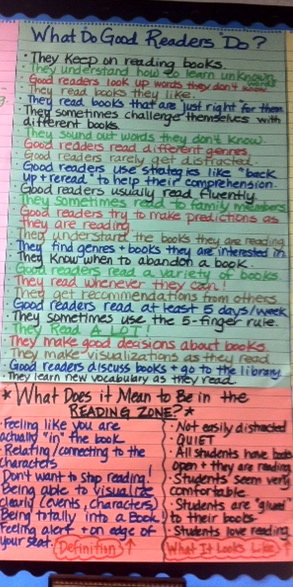 What Do Good Readers Do?
• They Keep on reading books.
They understand how to learn unknown
Good readers look up words they don't know
• They read books they like.
• They read books that are just right for them
• They sometimes challenge themselves with
different books.
They sound out words they don't know.
Good readers read different genres.
Good readers rarely get distracted.
Good readers use strategies like "back
up + reread" to help their comprehension.
• Good readers usually read fluently.
• They sometimes read to family members
• Good readers try to make predictions as
They are reading.
• They understand the books they are reading
They find genres + books they are interested in.
• They Know when to abandon a book.
• Good readers read a variety of books
They read whenever they can!
They get recommendations from others.
Good readers read at least 5 days/week
• They sometimes use the 5-finger rule.
They Read A LOT!
They make good decisions about books.
They make visualizations as they read
Good readers discuss books + go to the library
• They learn new vocabulary as they read.
* What Does it Mean to Be in the
READING ZONE? *
• Feeling like you are
actually "in" the book
• Relating/connecting to the
characters
Don't want to stop reading!
Being able to visualize
clearly (events, characters)
Being totally into a Book!
Feeling alert + on edge of
your seat.
Definition
• Not easily distracted
• QUIET
• All students have books
open + they are reading
• Students seem very
comfortable
• Students are "glued"
to their books
• Students love reading
What It Looks Like